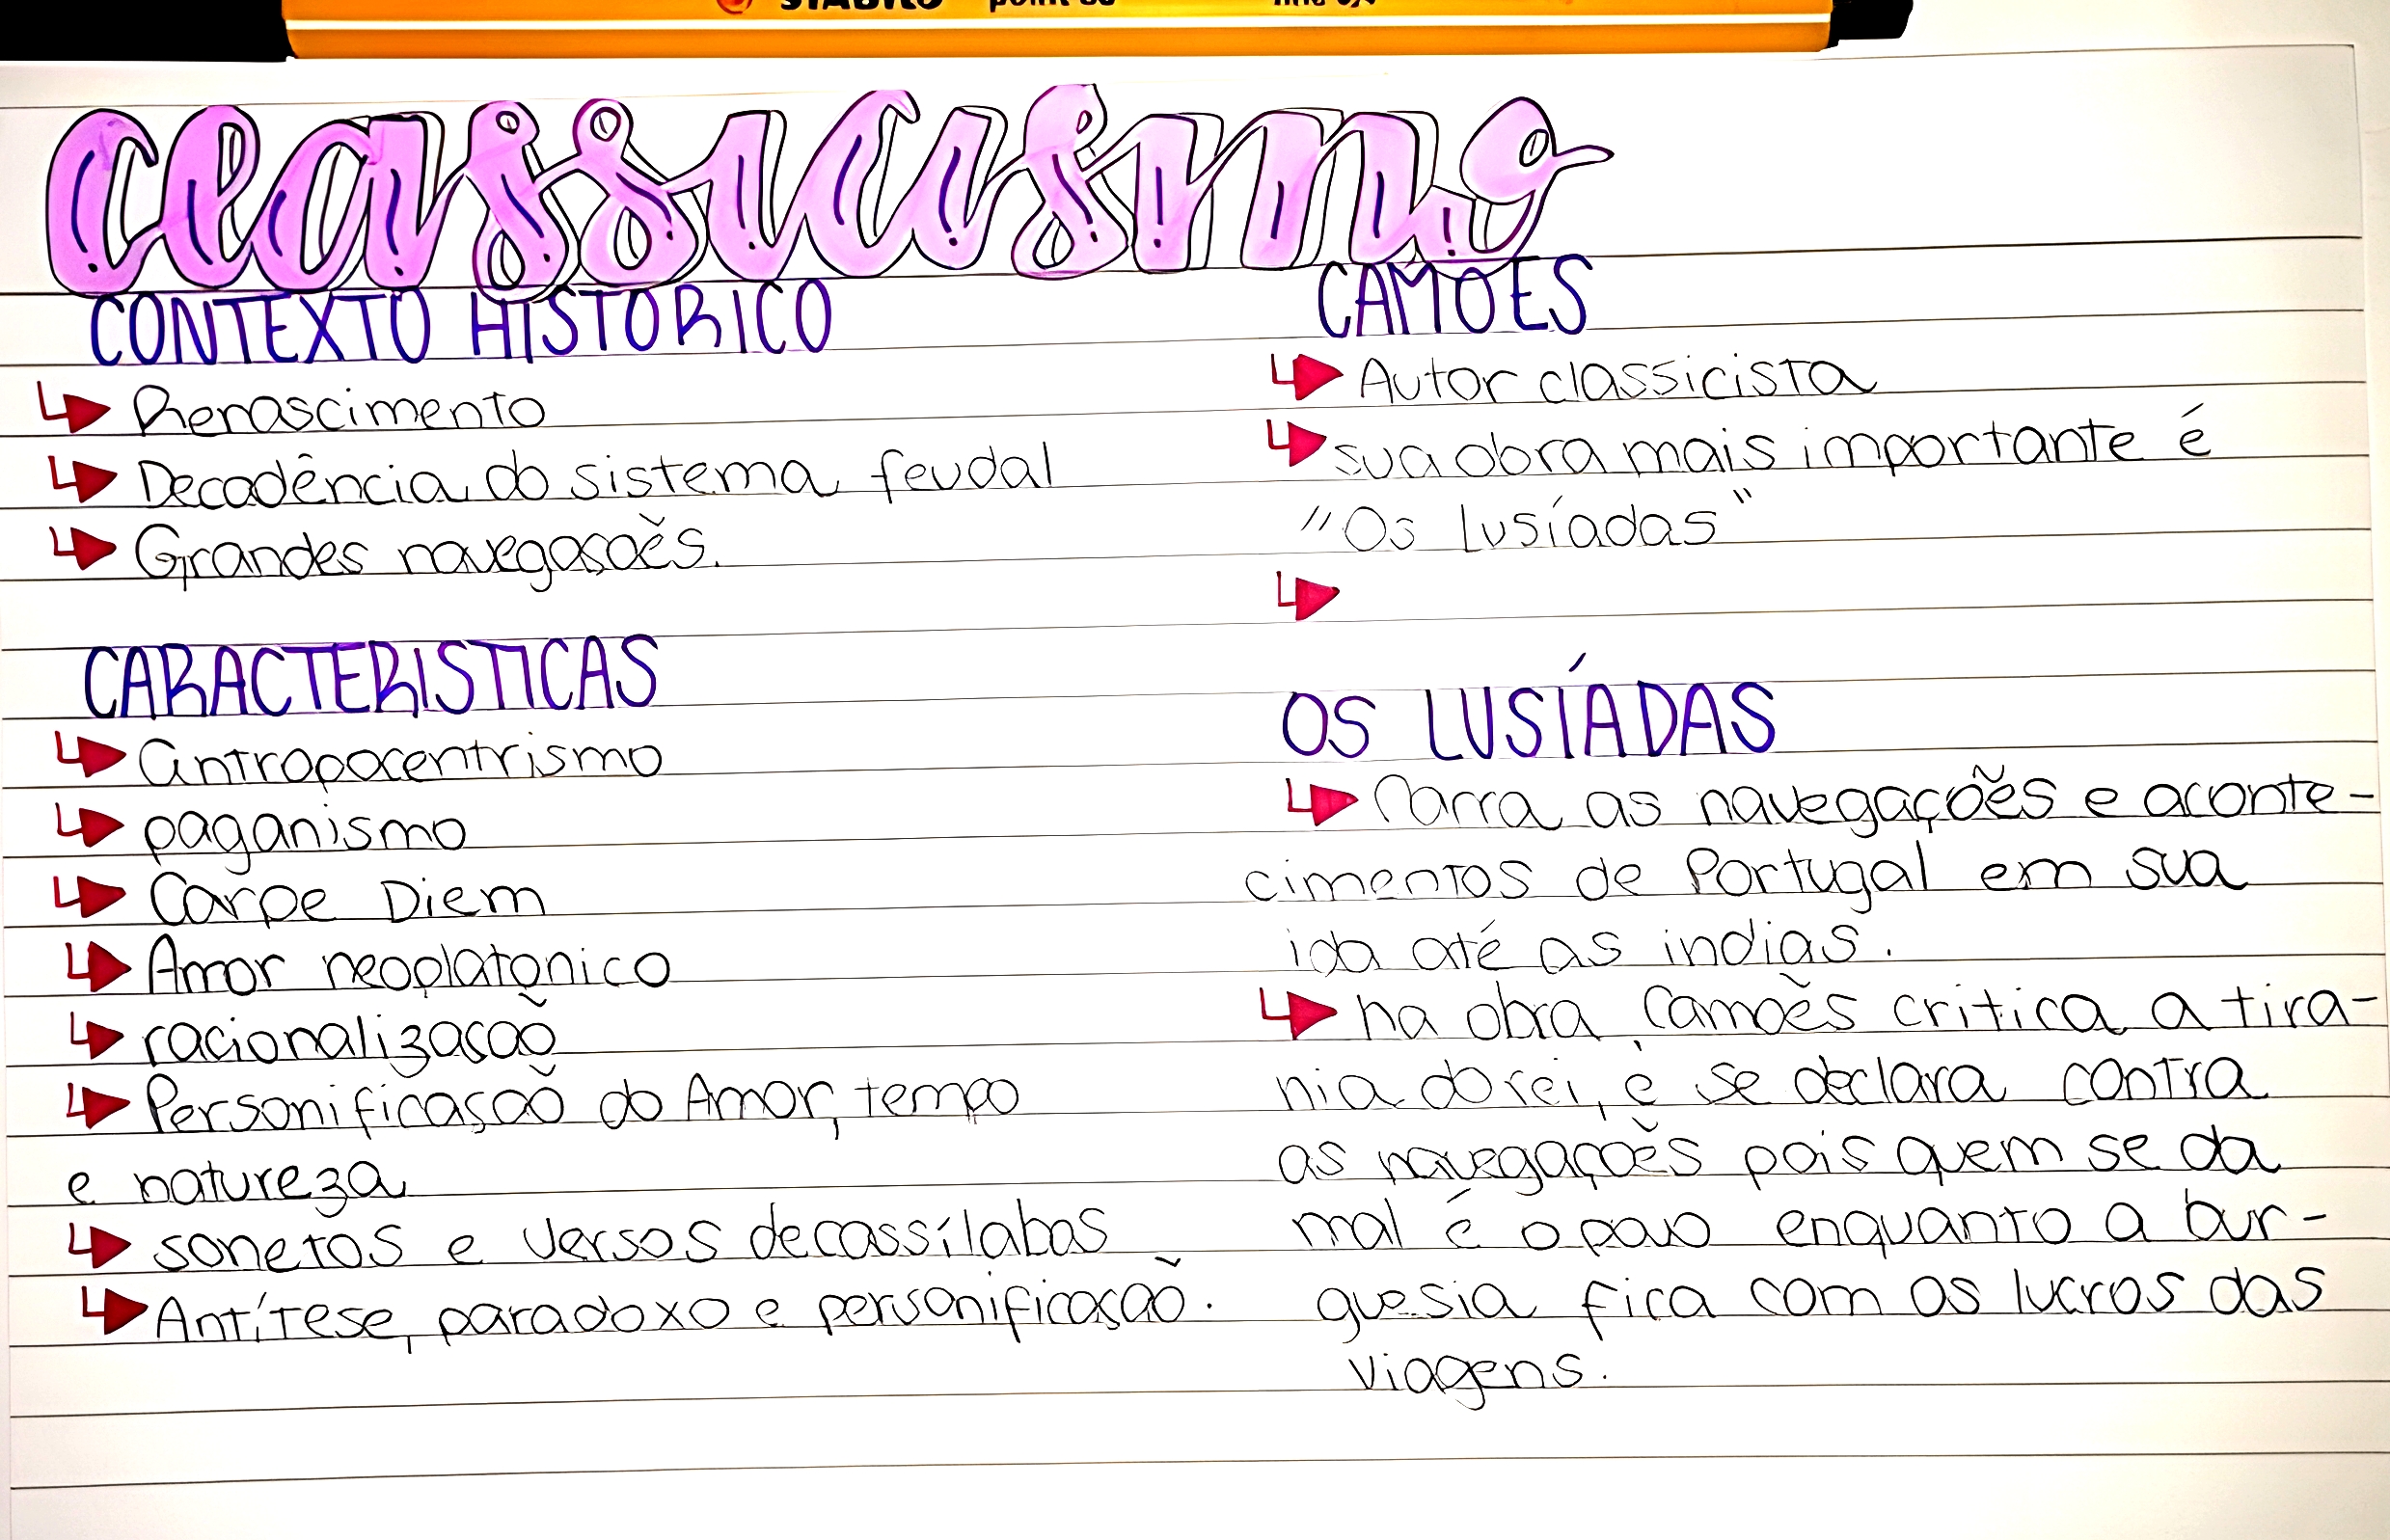 STABILO point 88 fine 0,4
classicismo
CONTEXTO HISTORICO
Renascimento
Decadência do sistema feudal
Grandes navegasoẽs.
CARACTERISTICAS
antropocentrismo
paganismo
Carpe Diem
Amor neoplatonico
racionalizaçaõ
Personificasaõ do Amor, tempo
e natureza
sonetos e versos decassílabos
Antítese, paradoxo e personificaçaõ.
CAMOES
Autor classicista
sua obra mais importante é
"Os Lusíadas"
OS LUSÍADAS
Narra as navegaçoẽs e aconte-
cimentos de Portugal em sua
ida até as indias.
na obra, Camoẽs critica a tira-
nia do rei, e se declara contra
as navegaçoẽs pois quem se da
mal é o povo enquanto a bur-
guesia fica com os lucros das
viagens.